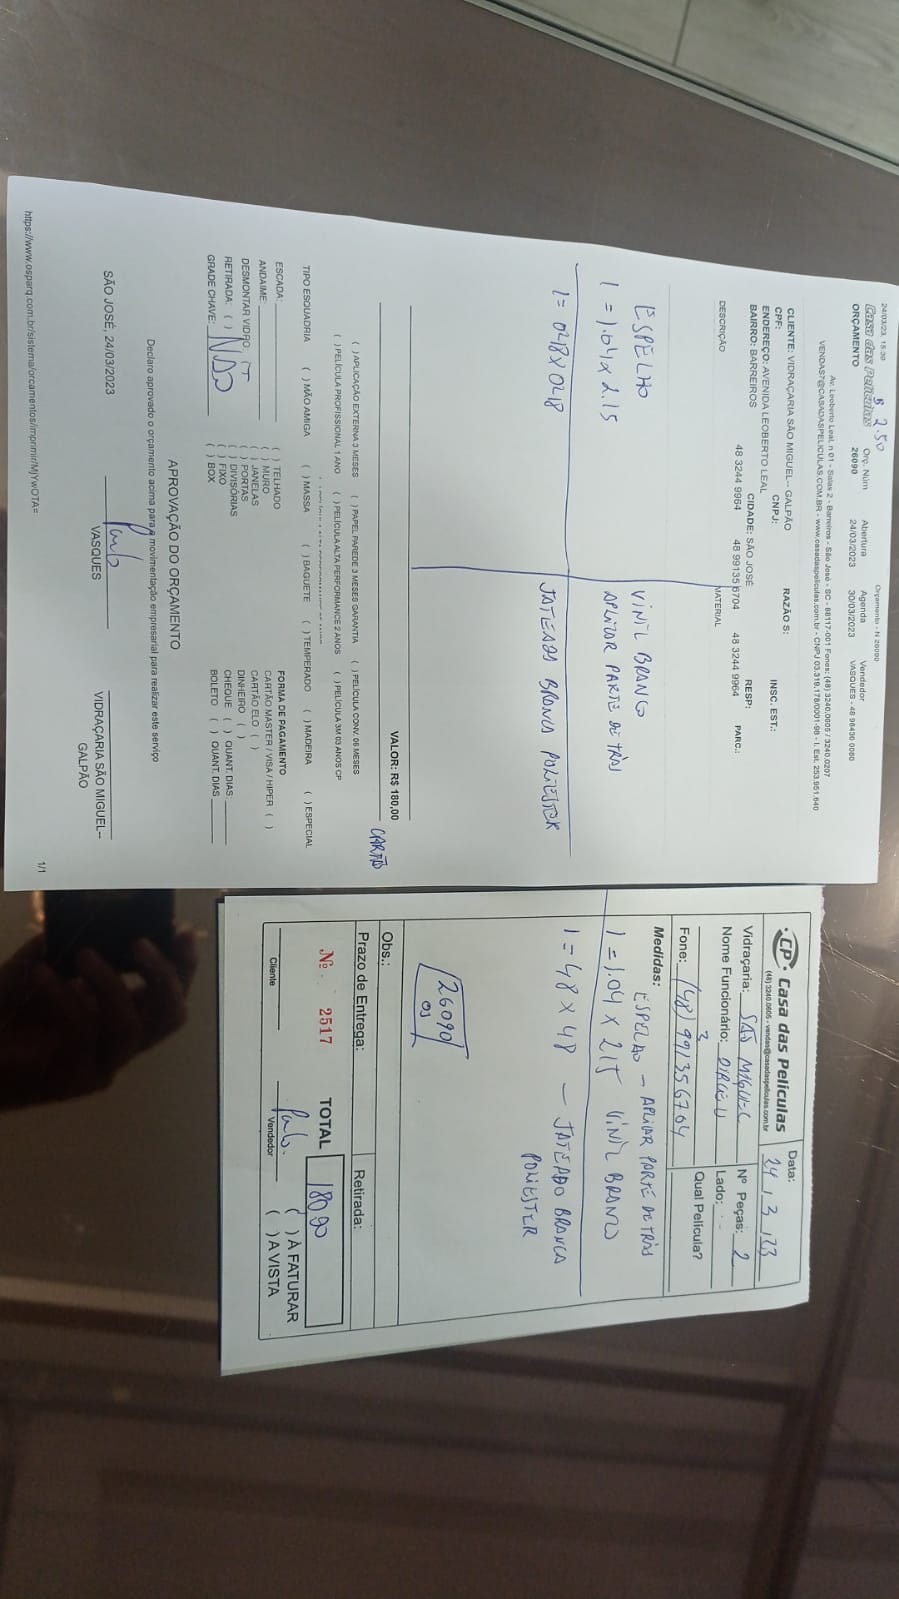 24/03/23, 15:39
Orçamento - N 26090
Casa das Películas
2.50
ORÇAMENTO
Orç. Núm
26090
Abertura
24/03/2023
Agenda
30/03/2023
Vendedor
VASQUES - 48 98430 0060
Av. Leoberto Leal, n 01 - Salas 2 - Barreiros - São José - SC - 88117-001 Fones: (48) 3240.0605 / 3240.0207
VENDAS7@CASADASPELICULAS.COM.BR - www.casadaspeliculas.com.br - CNPJ 03.319.178/0001-98 - I. Est. 253.951.640
CLIENTE: VIDRAÇARIA SÃO MIGUEL-- GALPÃO RAZÃO S:
CPF: CNPJ: INSC. EST.:
ENDEREÇO: AVENIDA LEOBERTO LEAL
BAIRRO: BARREIROS CIDADE: SÃO JOSÉ RESP: PARC.:
48 3244 9964 48 99135 6704 48 3244 9964
DESCRIÇÃO MATERIAL
ESPELHO VINIL BRANCO
1 = 1.04 x 2.15 APLICAR PARTE DE TRÁS
1 = 048 x 048 JATEADO BRANCO POLIESTER
VALOR: R$ 180,00
CARTÃO
( ) APLICAÇÃO EXTERNA 3 MESES ( ) PAPEL PAREDE 3 MESES GARANTIA ( ) PELÍCULA CONV. 06 MESES
( ) PELÍCULA PROFISSIONAL 1 ANO ( ) PELÍCULA ALTA PERFORMANCE 2 ANOS ( ) PELÍCULA 3M 03 ANOS CP
TIPO ESQUADRIA ( ) MÃO AMIGA ( ) MASSA ( ) BAGUETE ( ) TEMPERADO ( ) MADEIRA ( ) ESPECIAL
ESCADA: ( ) TELHADO FORMA DE PAGAMENTO
ANDAIME: ( ) MURO CARTÃO MASTER / VISA / HIPER ( )
( ) JANELAS CARTÃO ELO ( )
DESMONTAR VIDRO: ( ) PORTAS DINHEIRO ( )
RETIRADA: ( ) ( ) DIVISÓRIAS CHEQUE ( ) QUANT. DIAS:
( ) FIXO BOLETO ( ) QUANT. DIAS
GRADE CHAVE: ( ) BOX
APROVAÇÃO DO ORÇAMENTO
Declaro aprovado o orçamento acima para a movimentação empresarial para realizar este serviço
SÃO JOSÉ, 24/03/2023
Paulo
VASQUES
VIDRAÇARIA SÃO MIGUEL--
GALPÃO
https://www.osparq.com.br/sistema/orcamentos/imprimir/MjYwOTA=
1/1
CP Casa das Películas
(48) 3240.0605 - vendas@casadaspeliculas.com.br
Data:
24 / 3 / 23
Vidraçaria: SÃO MIGUEL Nº Peças: 2
Nome Funcionário: DIRCEU Lado:
Fone: (48) 991356704 Qual Película?
3
Medidas: ESPELHO - APLICAR PARTE DE TRÁS
1 = 1.04 x 215 VINIL BRANCO
1 = 48 x 48 - JATEADO BRANCO
POLIESTER
26090
Obs.:
Prazo de Entrega: Retirada:
Nº 2517 TOTAL 180,00
Paulo.
Cliente Vendedor
( ) À FATURAR
( ) A VISTA